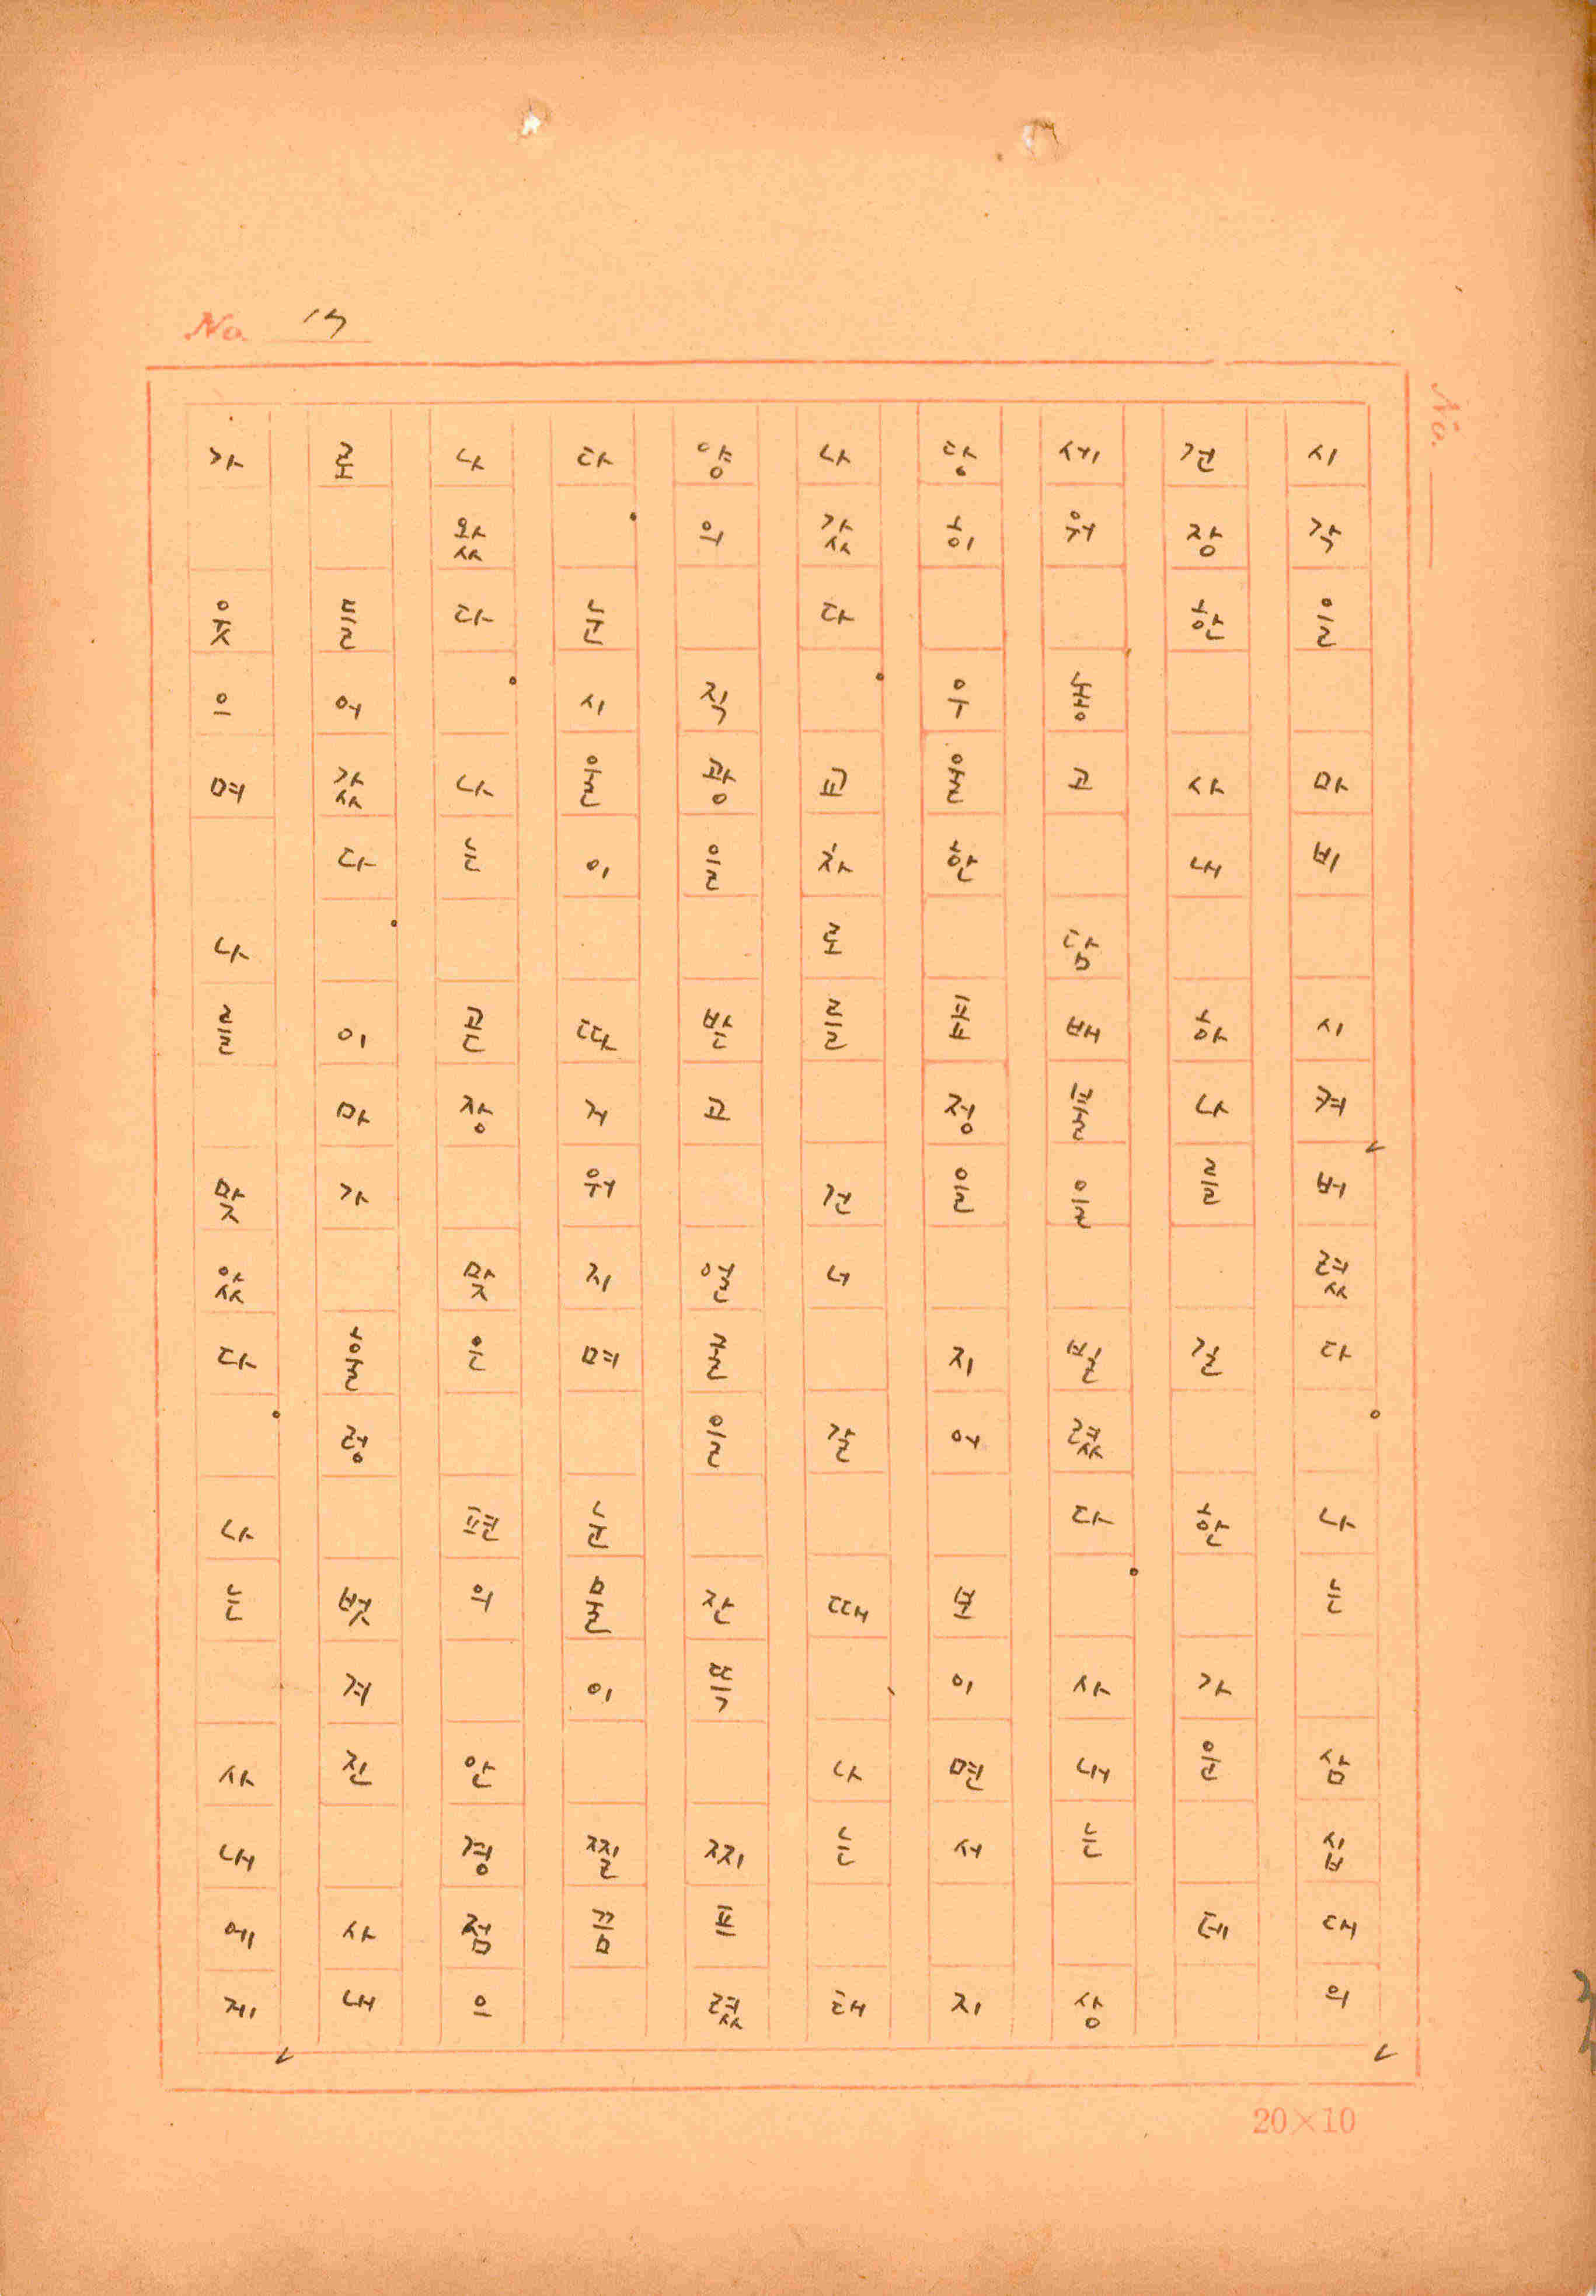 No. 17
시각을 마비 시켜버렸다. 나는 삼십대의
건장한 사내 하나를 길 한 가운 데
세워 놓고 담배불을 빌렸다. 사내는 상
당히 우울한 표정을 지어 보이면서 지
나갔다. 교차로를 건너 갈 때 나는 태
양의 직광을 받고 얼굴을 잔뜩 찌프렸
다. 눈시울이 따거워지며 눈물이 찔끔
나왔다. 나는 곤장 맞은 편의 안경점으
로 들어갔다. 이마가 훌렁 벗겨진 사내
가 웃으며 나를 맞았다. 나는 사내에게
No.
20×10